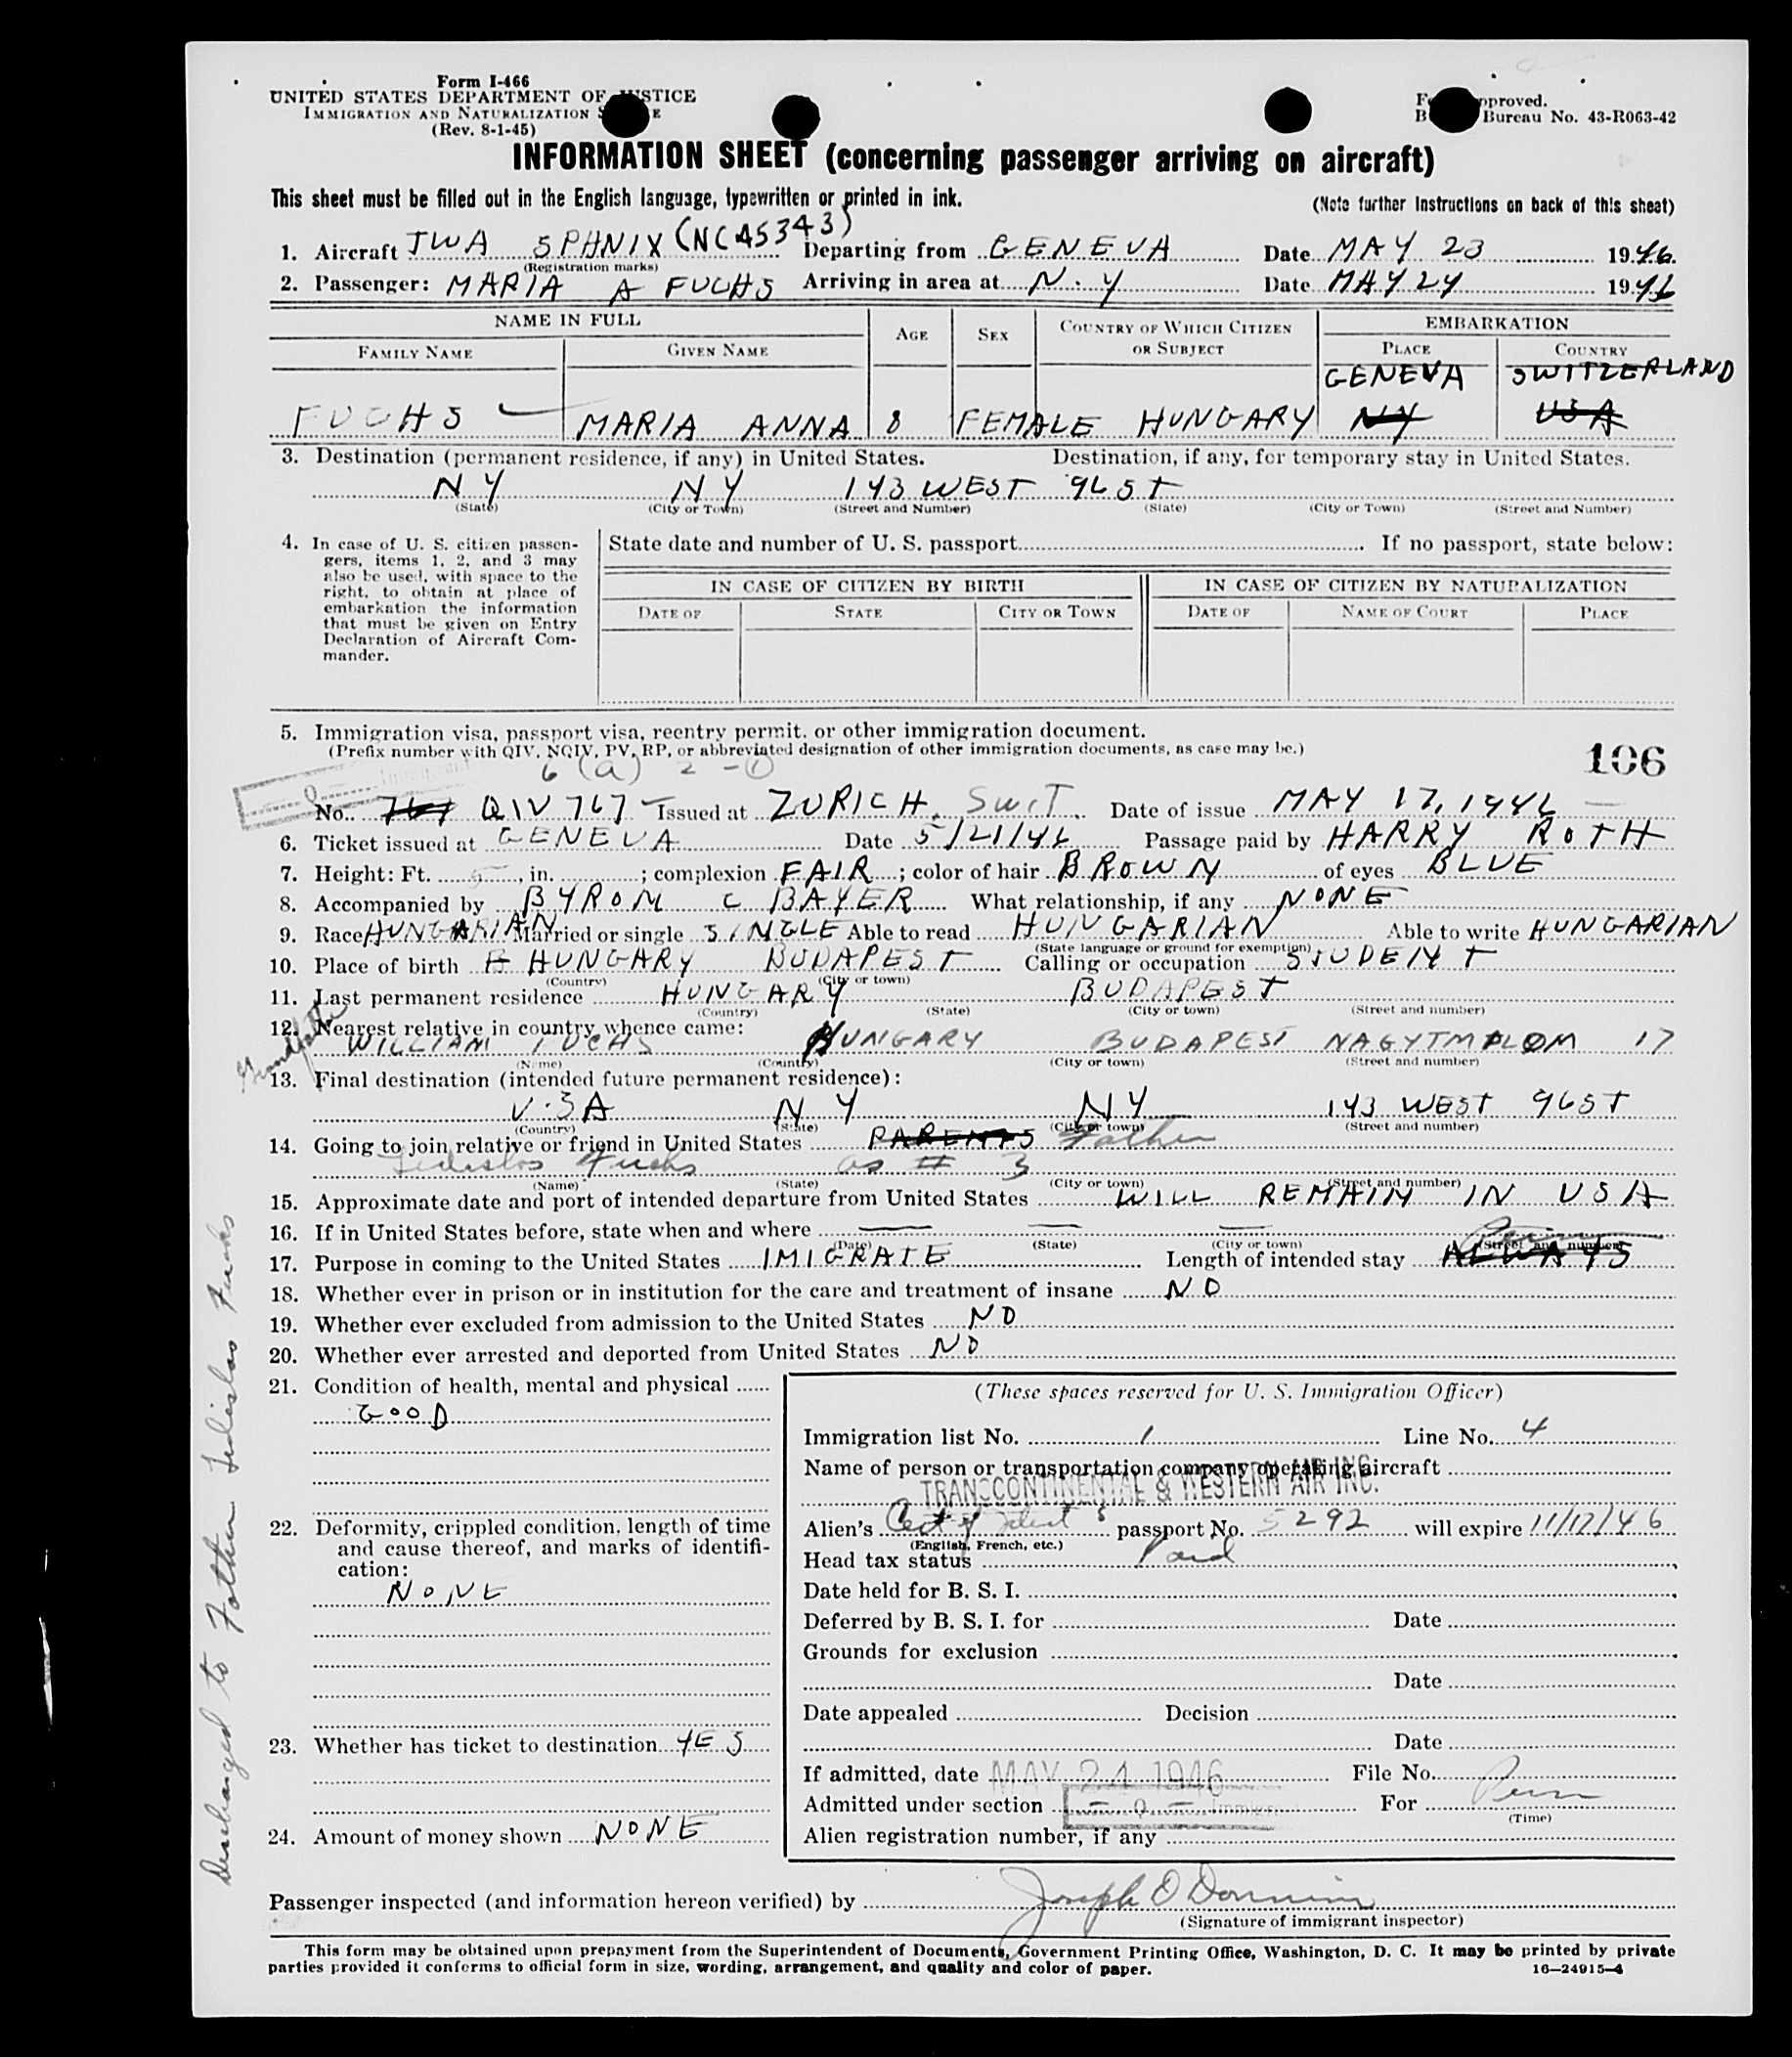 Form I-466
UNITED STATES DEPARTMENT OF JUSTICE
IMMIGRATION AND NATURALIZATION
(Rev. 8-1-45)
Form approved.
Bureau No. 43-R063-42
INFORMATION SHEET (concerning passenger arriving on aircraft)
This sheet must be filled out in the English language, typewritten or printed in ink.
(Note further instructions on back of this sheet)
1. Aircraft TWA SPHNIX (NC45343) Departing from GENEVA Date MAY 23 1946
(Registration marks)
2. Passenger: MARIA A FUCHS Arriving in area at N.Y Date MAY 24 1946
NAME IN FULL AGE SEX COUNTRY OF WHICH CITIZEN OR SUBJECT EMBARKATION
FAMILY NAME GIVEN NAME PLACE COUNTRY
GENEVA SWITZERLAND
FUCHS MARIA ANNA 8 FEMALE HUNGARY NY USA
3. Destination (permanent residence, if any) in United States. Destination, if any, for temporary stay in United States.
NY NY 143 WEST 96 ST
(State) (City or Town) (Street and Number) (State) (City or Town) (Street and Number)
4. In case of U. S. citizen passen-
gers, items 1, 2, and 3 may
also be used, with space to the
right, to obtain at place of
embarkation the information
that must be given on Entry
Declaration of Aircraft Com-
mander.
State date and number of U. S. passport If no passport, state below:
IN CASE OF CITIZEN BY BIRTH IN CASE OF CITIZEN BY NATURALIZATION
DATE OF STATE CITY OR TOWN DATE OF NAME OF COURT PLACE
5. Immigration visa, passport visa, reentry permit, or other immigration document.
(Prefix number with QIV, NQIV, PV, RP, or abbreviated designation of other immigration documents, as case may be.)
106
6 (a) 2 - 1
No. 767 QIV 767 Issued at ZURICH, Swit. Date of issue MAY 17, 1946
6. Ticket issued at GENEVA Date 5/21/46 Passage paid by HARRY ROTH
7. Height: Ft. 5, in. ; complexion FAIR; color of hair BROWN of eyes BLUE
8. Accompanied by BYROM C BAYER What relationship, if any NONE
9. Race HUNGARIAN Married or single SINGLE Able to read HUNGARIAN Able to write HUNGARIAN
(State language or ground for exemption)
10. Place of birth HUNGARY BUDAPEST Calling or occupation STUDENT
(Country) (City or town)
11. Last permanent residence HUNGARY BUDAPEST
(Country) (State) (City or town) (Street and number)
12. Nearest relative in country whence came:
Grandfather
WILLIAM FUCHS HUNGARY BUDAPEST NAGYTMPLOM 17
(Name) (Country) (City or town) (Street and number)
13. Final destination (intended future permanent residence):
U.SA NY NY 143 WEST 96 ST
(Country) (State) (City or town) (Street and number)
14. Going to join relative or friend in United States PARENTS Father
Fuchs as # 3
(Name) (State) (City or town) (Street and number)
15. Approximate date and port of intended departure from United States WILL REMAIN IN USA
16. If in United States before, state when and where
(Date) (State) (City or town) (Street and number)
17. Purpose in coming to the United States IMIGRATE Length of intended stay ALWAYS
18. Whether ever in prison or in institution for the care and treatment of insane NO
19. Whether ever excluded from admission to the United States NO
20. Whether ever arrested and deported from United States NO
21. Condition of health, mental and physical
GOOD
22. Deformity, crippled condition, length of time
and cause thereof, and marks of identifi-
cation:
NONE
23. Whether has ticket to destination YES
24. Amount of money shown NONE
(These spaces reserved for U. S. Immigration Officer)
Immigration list No. 1 Line No. 4
Name of person or transportation company operating aircraft
TRANSCONTINENTAL & WESTERN AIR INC.
Alien's Cert of Ident passport No. 5292 will expire 11/17/46
(English, French, etc.)
Head tax status Paid
Date held for B. S. I.
Deferred by B. S. I. for Date
Grounds for exclusion
Date
Date appealed Decision
Date
If admitted, date MAY 24 1946 File No.
Admitted under section For Perm
(Time)
Alien registration number, if any
Discharged to Father Fuchs
Passenger inspected (and information hereon verified) by Joseph
(Signature of immigrant inspector)
This form may be obtained upon prepayment from the Superintendent of Documents, Government Printing Office, Washington, D. C. It may be printed by private
parties provided it conforms to official form in size, wording, arrangement, and quality and color of paper.
16—24915-4